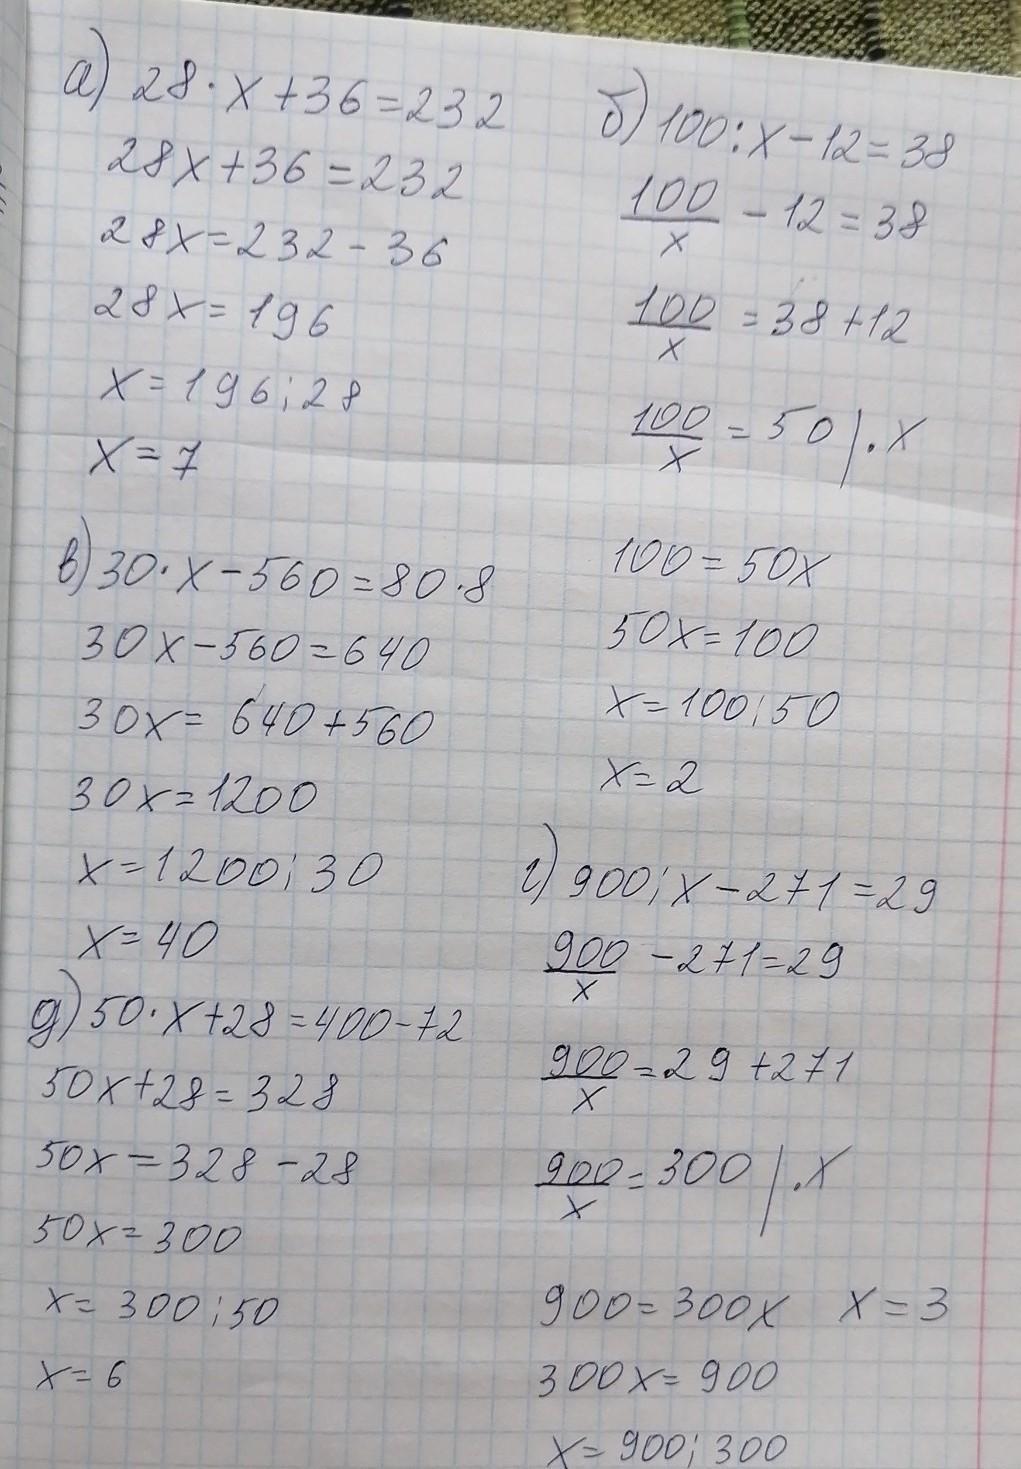 а) 28 · x + 36 = 232
28x + 36 = 232
28x = 232 - 36
28x = 196
x = 196 : 28
x = 7
б) 100 : x - 12 = 38
100/x - 12 = 38
100/x = 38 + 12
100/x = 50 | · x
100 = 50x
50x = 100
x = 100 : 50
x = 2
в) 30 · x - 560 = 80 · 8
30x - 560 = 640
30x = 640 + 560
30x = 1200
x = 1200 : 30
x = 40
г) 900 : x - 271 = 29
900/x - 271 = 29
900/x = 29 + 271
900/x = 300 | · x
900 = 300x
300x = 900
x = 900 : 300
x = 3
д) 50 · x + 28 = 400 - 72
50x + 28 = 328
50x = 328 - 28
50x = 300
x = 300 : 50
x = 6